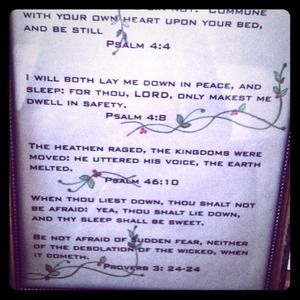 NOT. COMMUNE
WITH YOUR OWN HEART UPON YOUR BED,
AND BE STILL
PSALM 4:4
I WILL BOTH LAY ME DOWN IN PEACE, AND
SLEEP: FOR THOU, LORD, ONLY MAKEST ME
DWELL IN SAFETY.
PSALM 4:8
THE HEATHEN RAGED, THE KINGDOMS WERE
MOVED: HE UTTERED HIS VOICE, THE EARTH
MELTED.
PSALM 46:10
WHEN THOU LIEST DOWN, THOU SHALT NOT
BE AFRAID: YEA, THOU SHALT LIE DOWN,
AND THY SLEEP SHALL BE SWEET.
BE NOT AFRAID OF SUDDEN FEAR, NEITHER
OF THE DESOLATION OF THE WICKED, WHEN
IT COMETH.
PROVERBS 3: 24-24